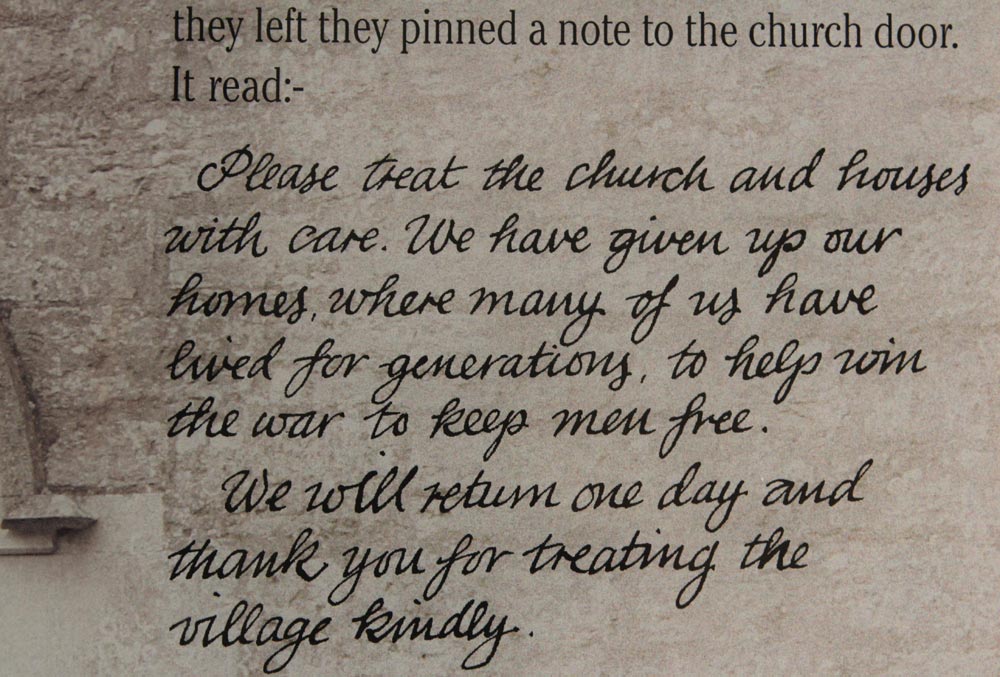 they left they pinned a note to the church door.
It read:-
Please treat the church and houses
with care. We have given up our
homes, where many of us have
lived for generations, to help win
the war to keep men free.
We will return one day and
thank you for treating the
village kindly.